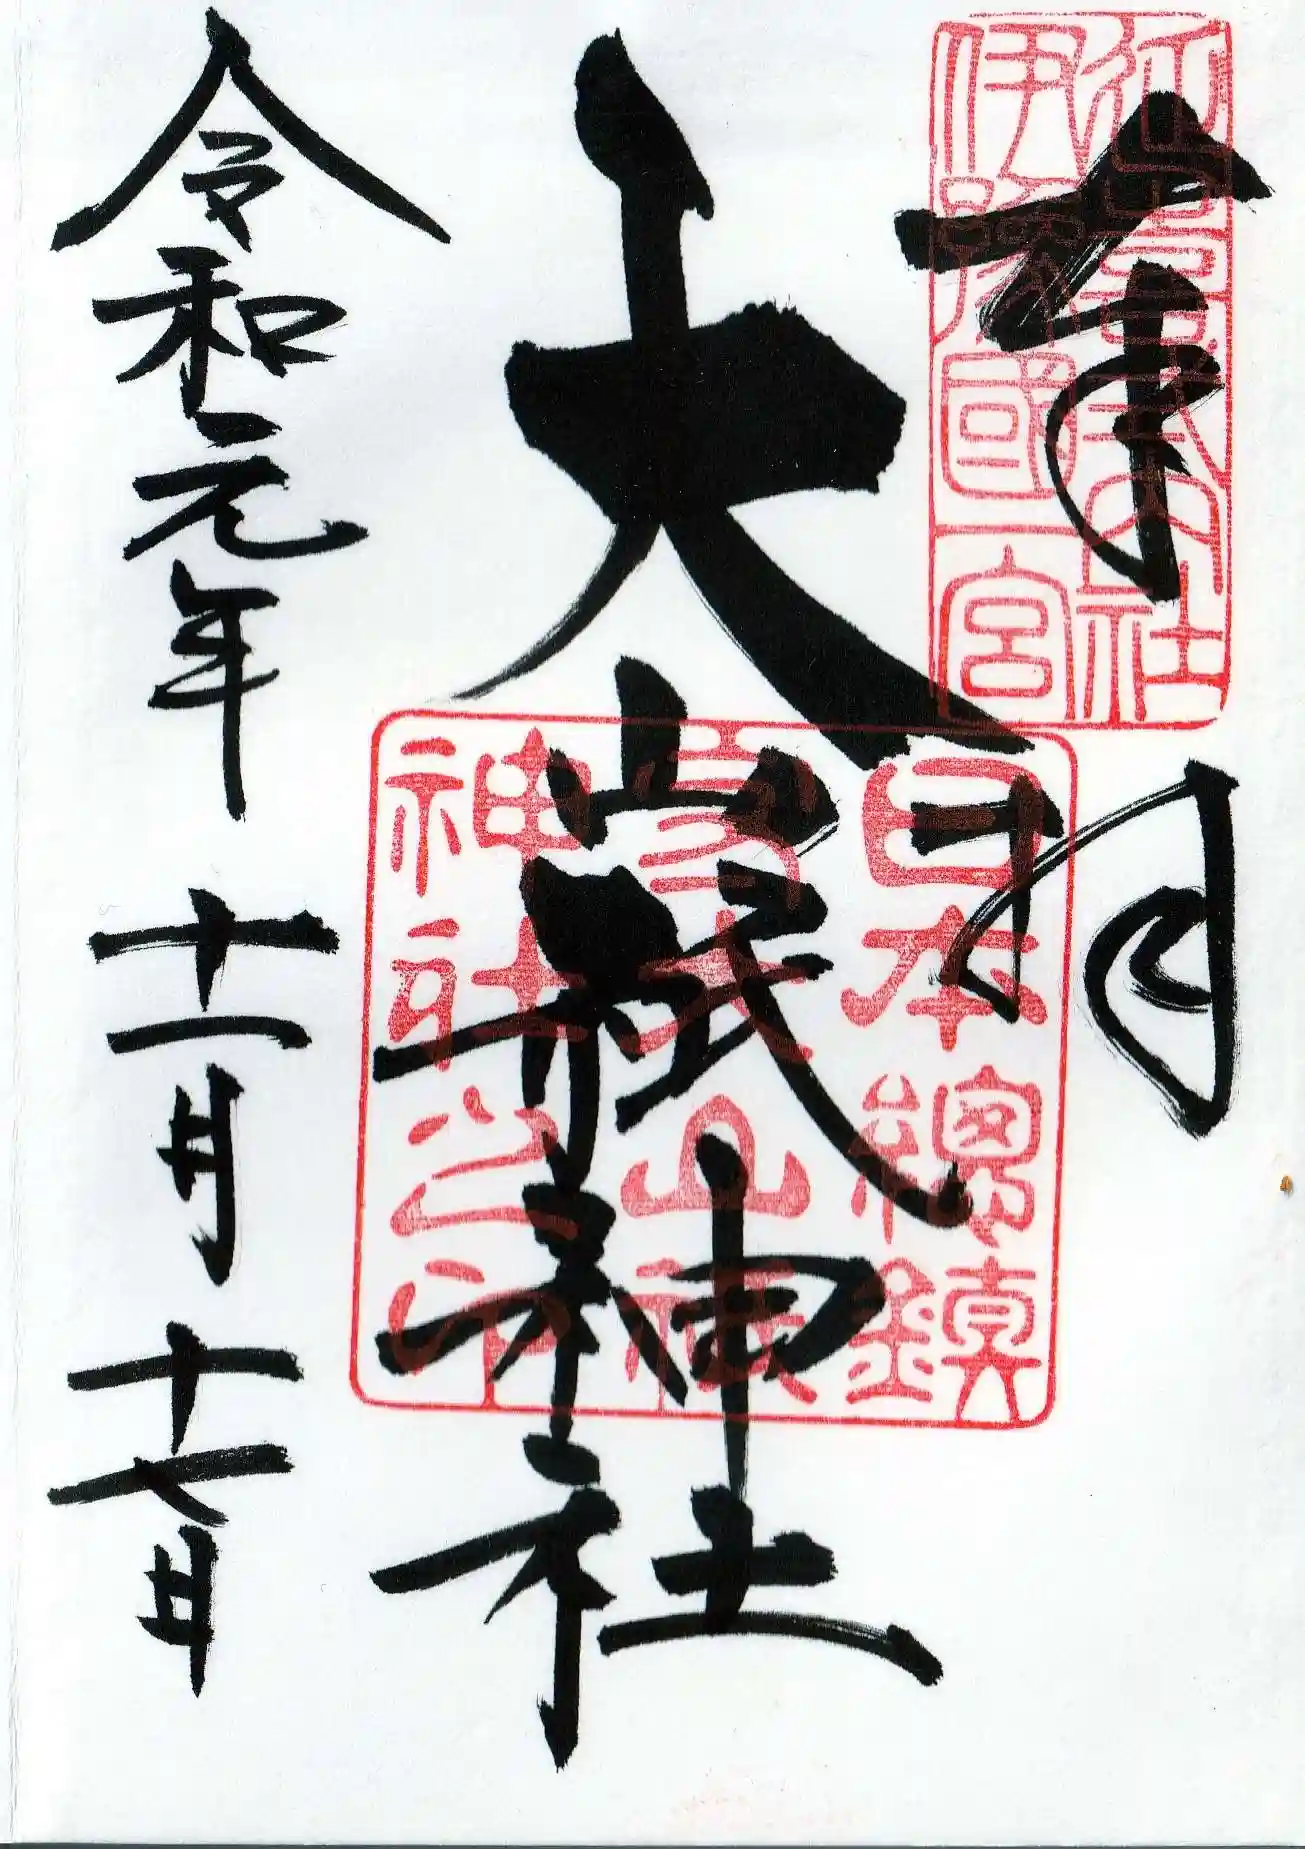 奉拝
延喜式内社
伊豫國一宮
大山祇神社
日本總鎮
守大山積
神社之印
令和元年十一月十七日